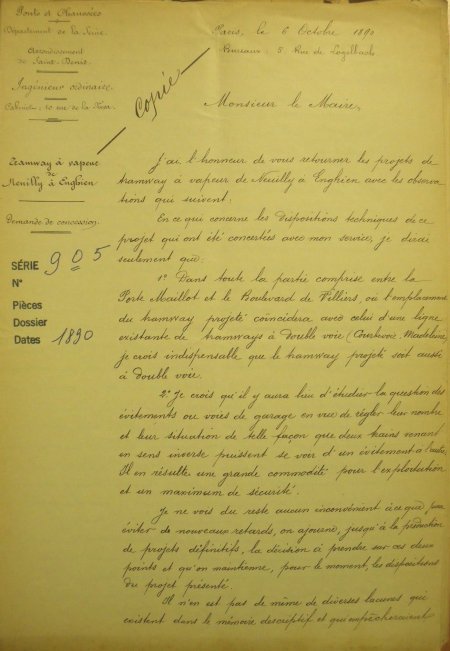 Ponts et Chaussées
Département de la Seine
Arrondissement
de Saint-Denis
Ingénieur ordinaire
Cabinet: 10 rue de la
Tramway à vapeur
de
Neuilly à Enghien
Demande de concession.
SÉRIE 905
N°
Pièces
Dossier
Dates 1890
Copie
Paris, le 6 Octobre 1890
Bureaux: 5 Rue de Logelbach
Monsieur le Maire,
J'ai l'honneur de vous retourner les projets de
tramway à vapeur de Neuilly à Enghien avec les observa
tions qui suivent:
En ce qui concerne les dispositions techniques de ce
projet qui ont été concertées avec mon service, je dirai
seulement que:
1° Dans toute la partie comprise entre la
Porte Maillot et le Boulevard de Villiers, où l'emplacement
du tramway projeté coïncidera avec celui d'une ligne
existante de tramways à double voie (Courbevoie-Madeleine)
je crois indispensable que le tramway projeté soit aussi
à double voie.
2° Je crois qu'il y aura lieu d'étudier la question des
évitements ou voies de garage en vue de régler leur nombre
et leur situation de telle façon que deux trains venant
en sens inverse puissent se voir d'un évitement à l'autre.
Il en résulte une grande commodité pour l'exploitation
et un maximum de sécurité.
Je ne vois du reste aucun inconvénient à ce que, pour
éviter de nouveaux retards, on ajourne, jusqu'à la production
de projets définitifs, la décision à prendre sur ces deux
points et qu'on maintienne, pour le moment, les dispositions
du projet présenté.
Il n'en est pas de même de diverses lacunes qui
existent dans le mémoire descriptif et qui empêcheraient